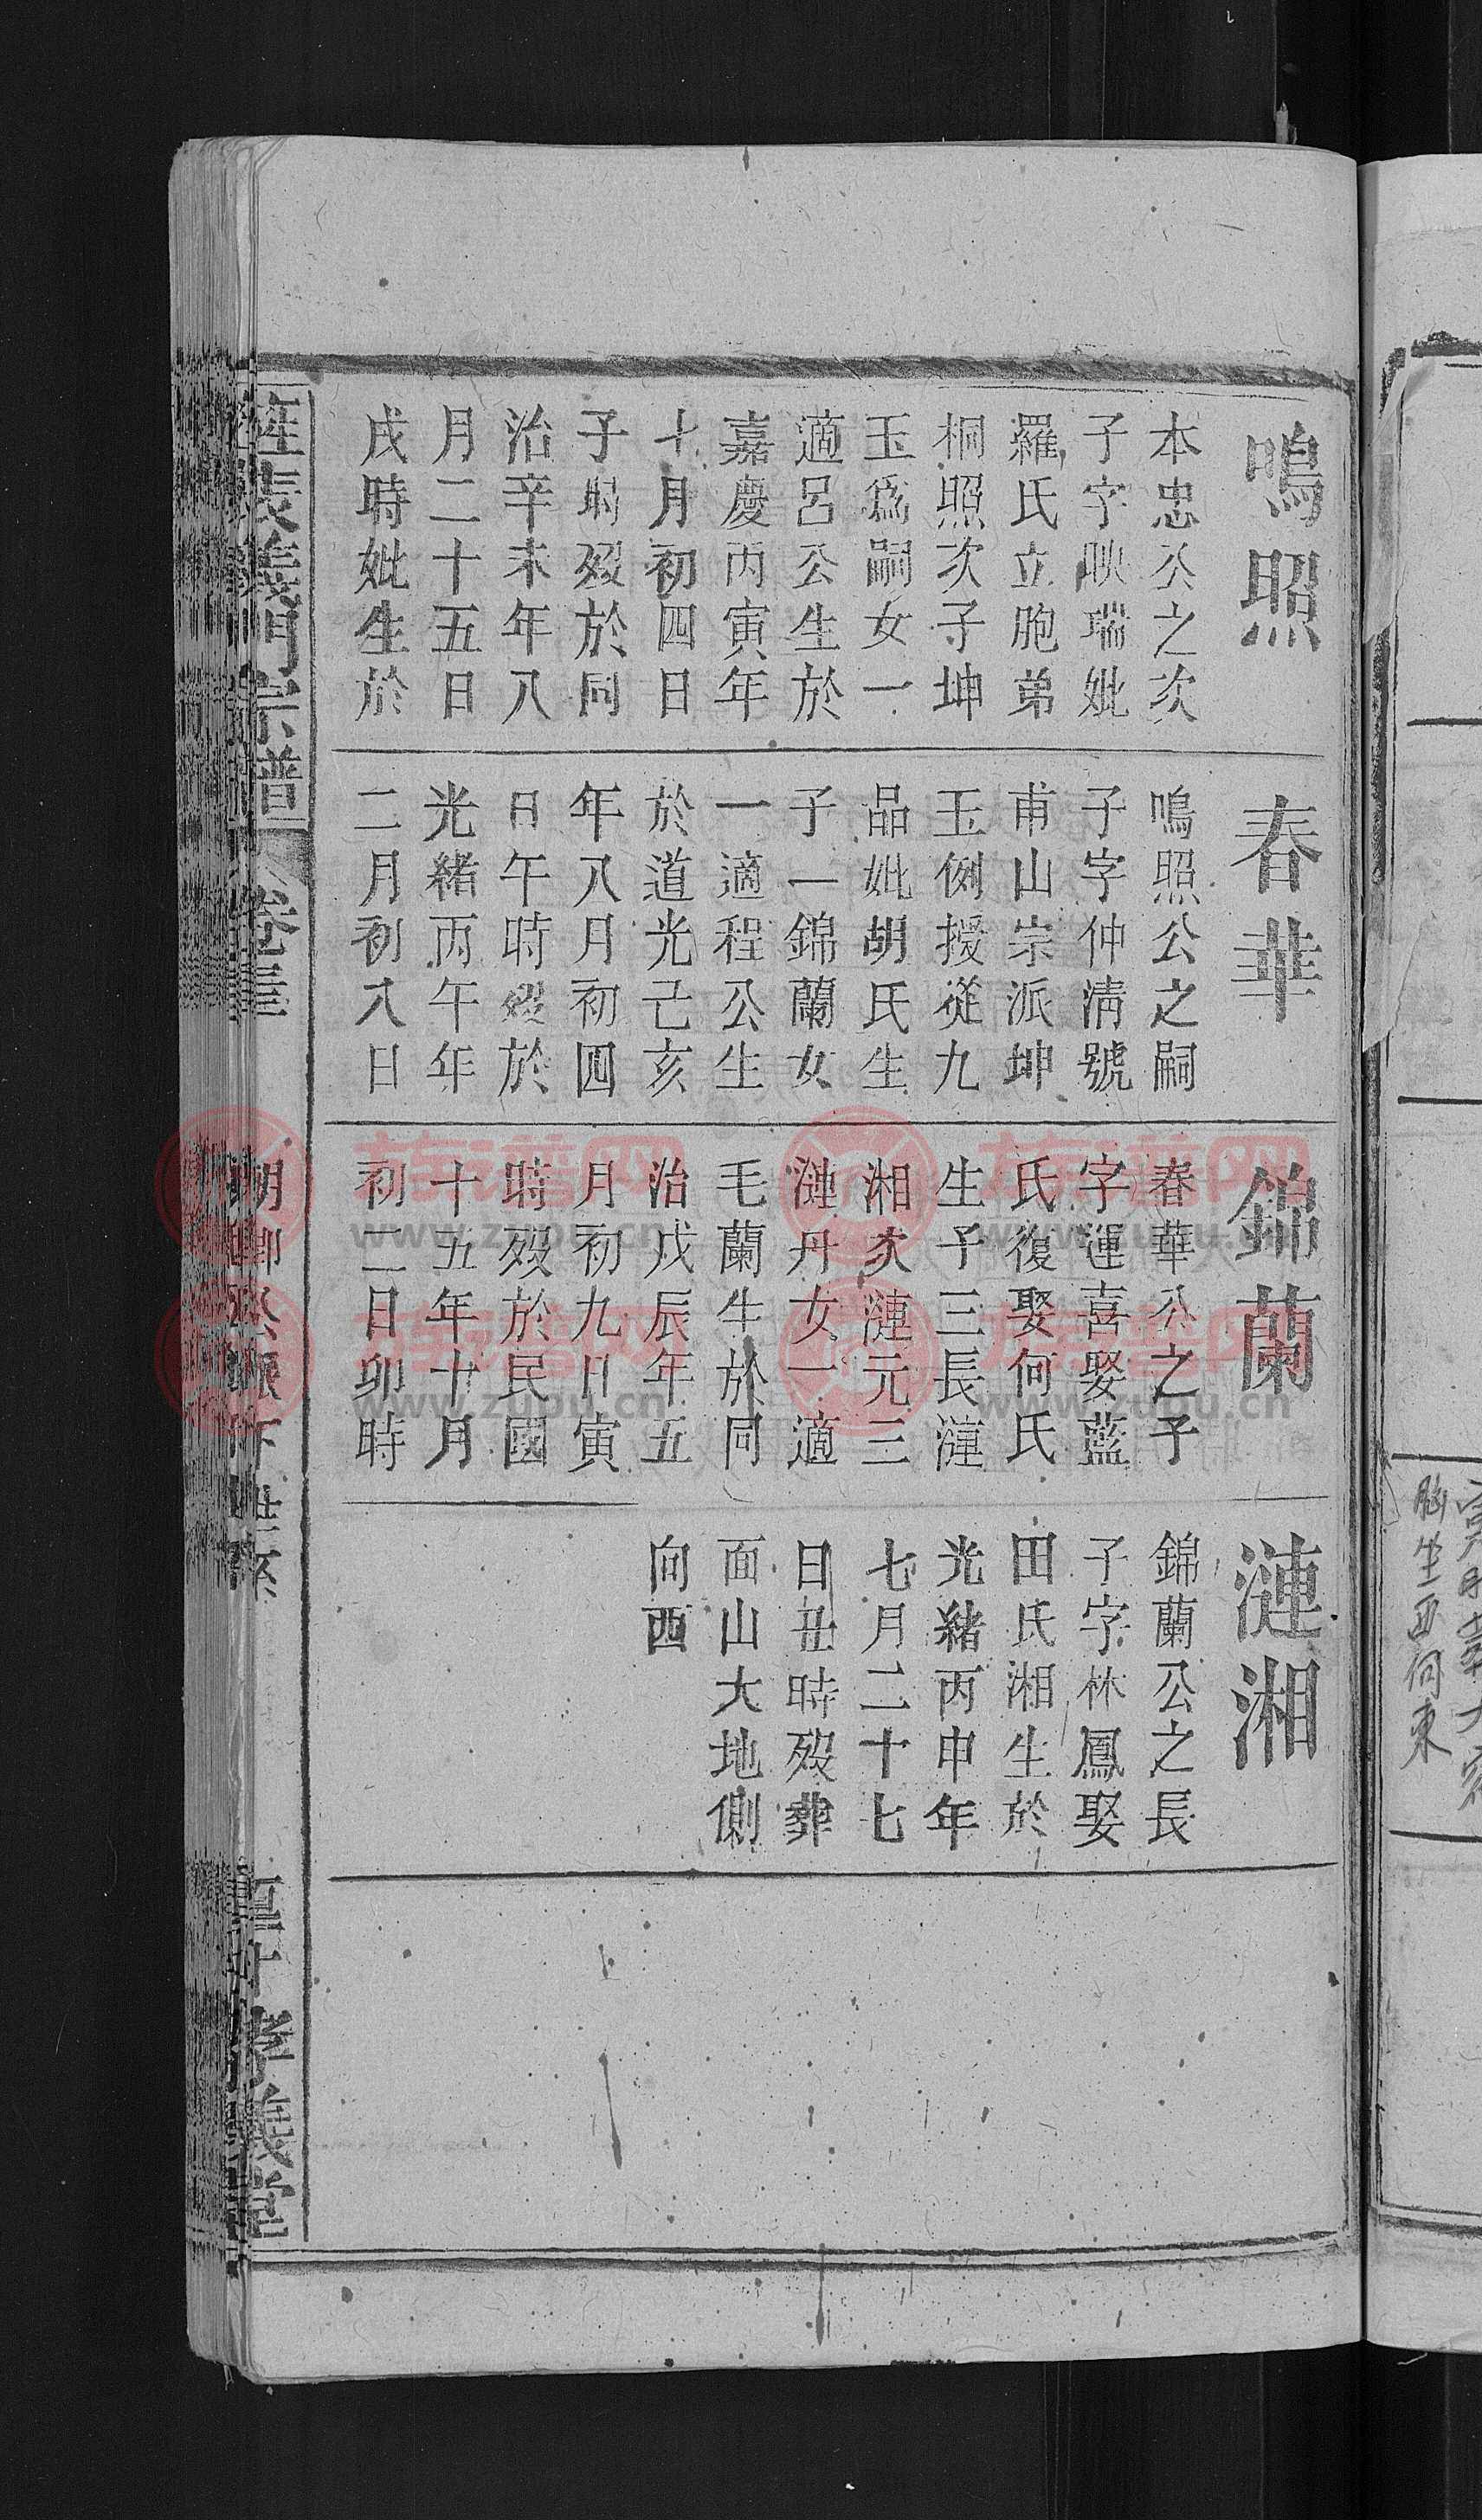 鳴照
本忠公之次
子字映瑞妣
羅氏立胞弟
桐照次子坤
玉為嗣女一
適呂公生於
嘉慶丙寅年
十月初四日
子時歿於同
治辛未年八
月二十五日
戌時妣生於
春華
鳴照公之嗣
子字仲清號
甫山宗派坤
玉例授從九
品妣胡氏生
子一錦蘭女
一適程公生
於道光己亥
年八月初四
日午時歿於
光緒丙午年
二月初八日
錦蘭
春華公之子
字運喜娶藍
氏復娶何氏
生子三長漣
湘次漣元三
漣丹女一適
毛蘭生於同
治戊辰年五
月初九日寅
時歿於民國
十五年十月
初二日卯時
漣湘
錦蘭公之長
子字林鳳娶
田氏湘生於
光緒丙申年
七月二十七
日丑時歿葬
面山大地側
向西
義門宗譜
卷三
孝義堂
坐西向東
族譜网
www.zupu.cn
族譜网
www.zupu.cn
族譜网
www.zupu.cn
族譜网
www.zupu.cn